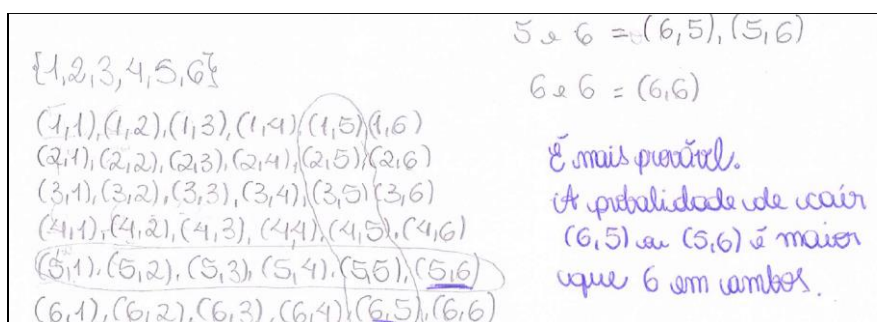 {1,2,3,4,5,6}
(1,1),(1,2),(1,3),(1,4),(1,5)(1,6)
(2,1),(2,2),(2,3),(2,4),(2,5),(2,6)
(3,1),(3,2),(3,3),(3,4),(3,5)(3,6)
(4,1),(4,2),(4,3),(4,4),(4,5),(4,6)
(5,1),(5,2),(5,3),(5,4),(5,5),(5,6)
(6,1),(6,2),(6,3),(6,4),(6,5),(6,6)
5 e 6 = (6,5),(5,6)
6 e 6 = (6,6)
É mais provável.
A probalidade de cair
(6,5) ou (5,6) é maior
que 6 em ambos.